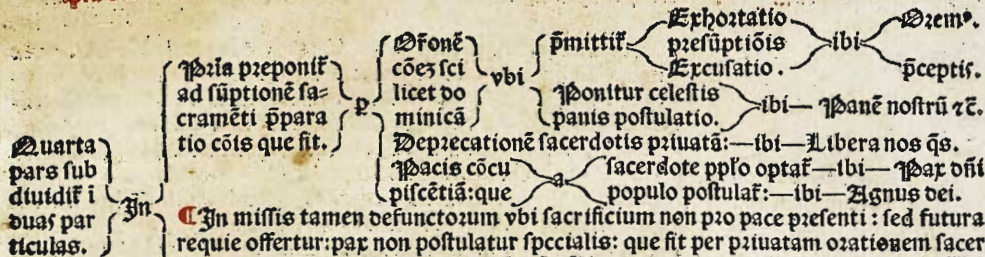 Quarta
pars sub
diuidit̄ i
duas par
ticulas.
In
Pria preponit̄
ad sūptionē sa=
cramēti p̄para
tio cōis que fit.
p
Or̄onē
cōeʒ sci
licet do
minicā
vbi
p̄mittit̄
Exhortatio
presūptiōis
Excusatio.
ibi
Oremꝰ.
p̄ceptis.
Ponitur celestis
panis postulatio.
ibi— Panē nostrū ⁊c̄.
Deprecationē sacerdotis priuatā:—ibi—Libera nos q̄s.
Pacis cōcu
piscētiā:que
a
sacerdote pp̄lo optat̄—ibi—Pax dn̄i
populo postulat̄:—ibi—Agnus dei.
¶In missis tamen defunctorum vbi sacrificium non pro pace presenti: sed futura
requie offertur:pax non postulatur specialis: que fit per priuatam orationem sacer